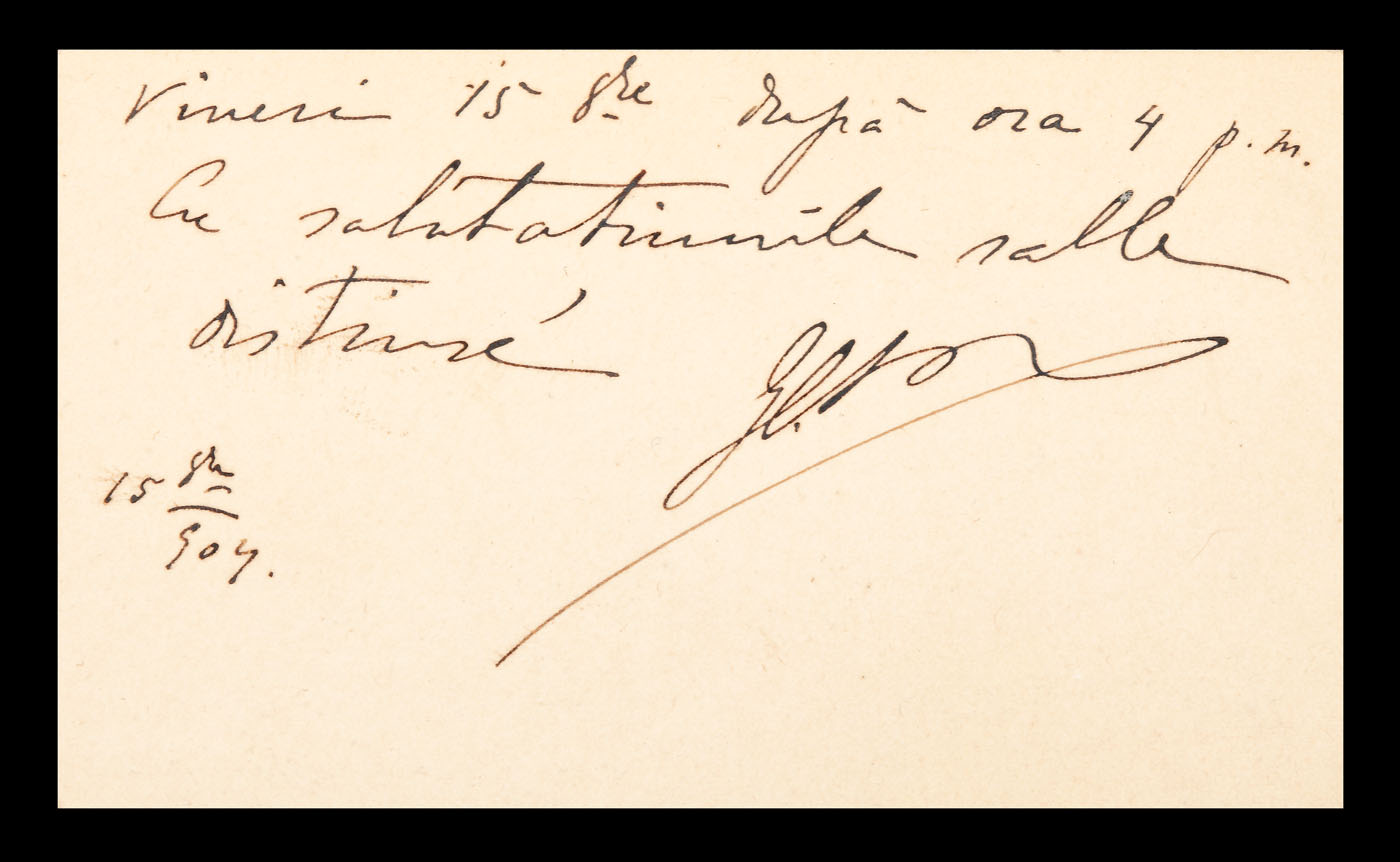 Vineri 15 8bre după ora 4 p.m.
Cu salutatiunile salle
distinse
15 8bre
904.